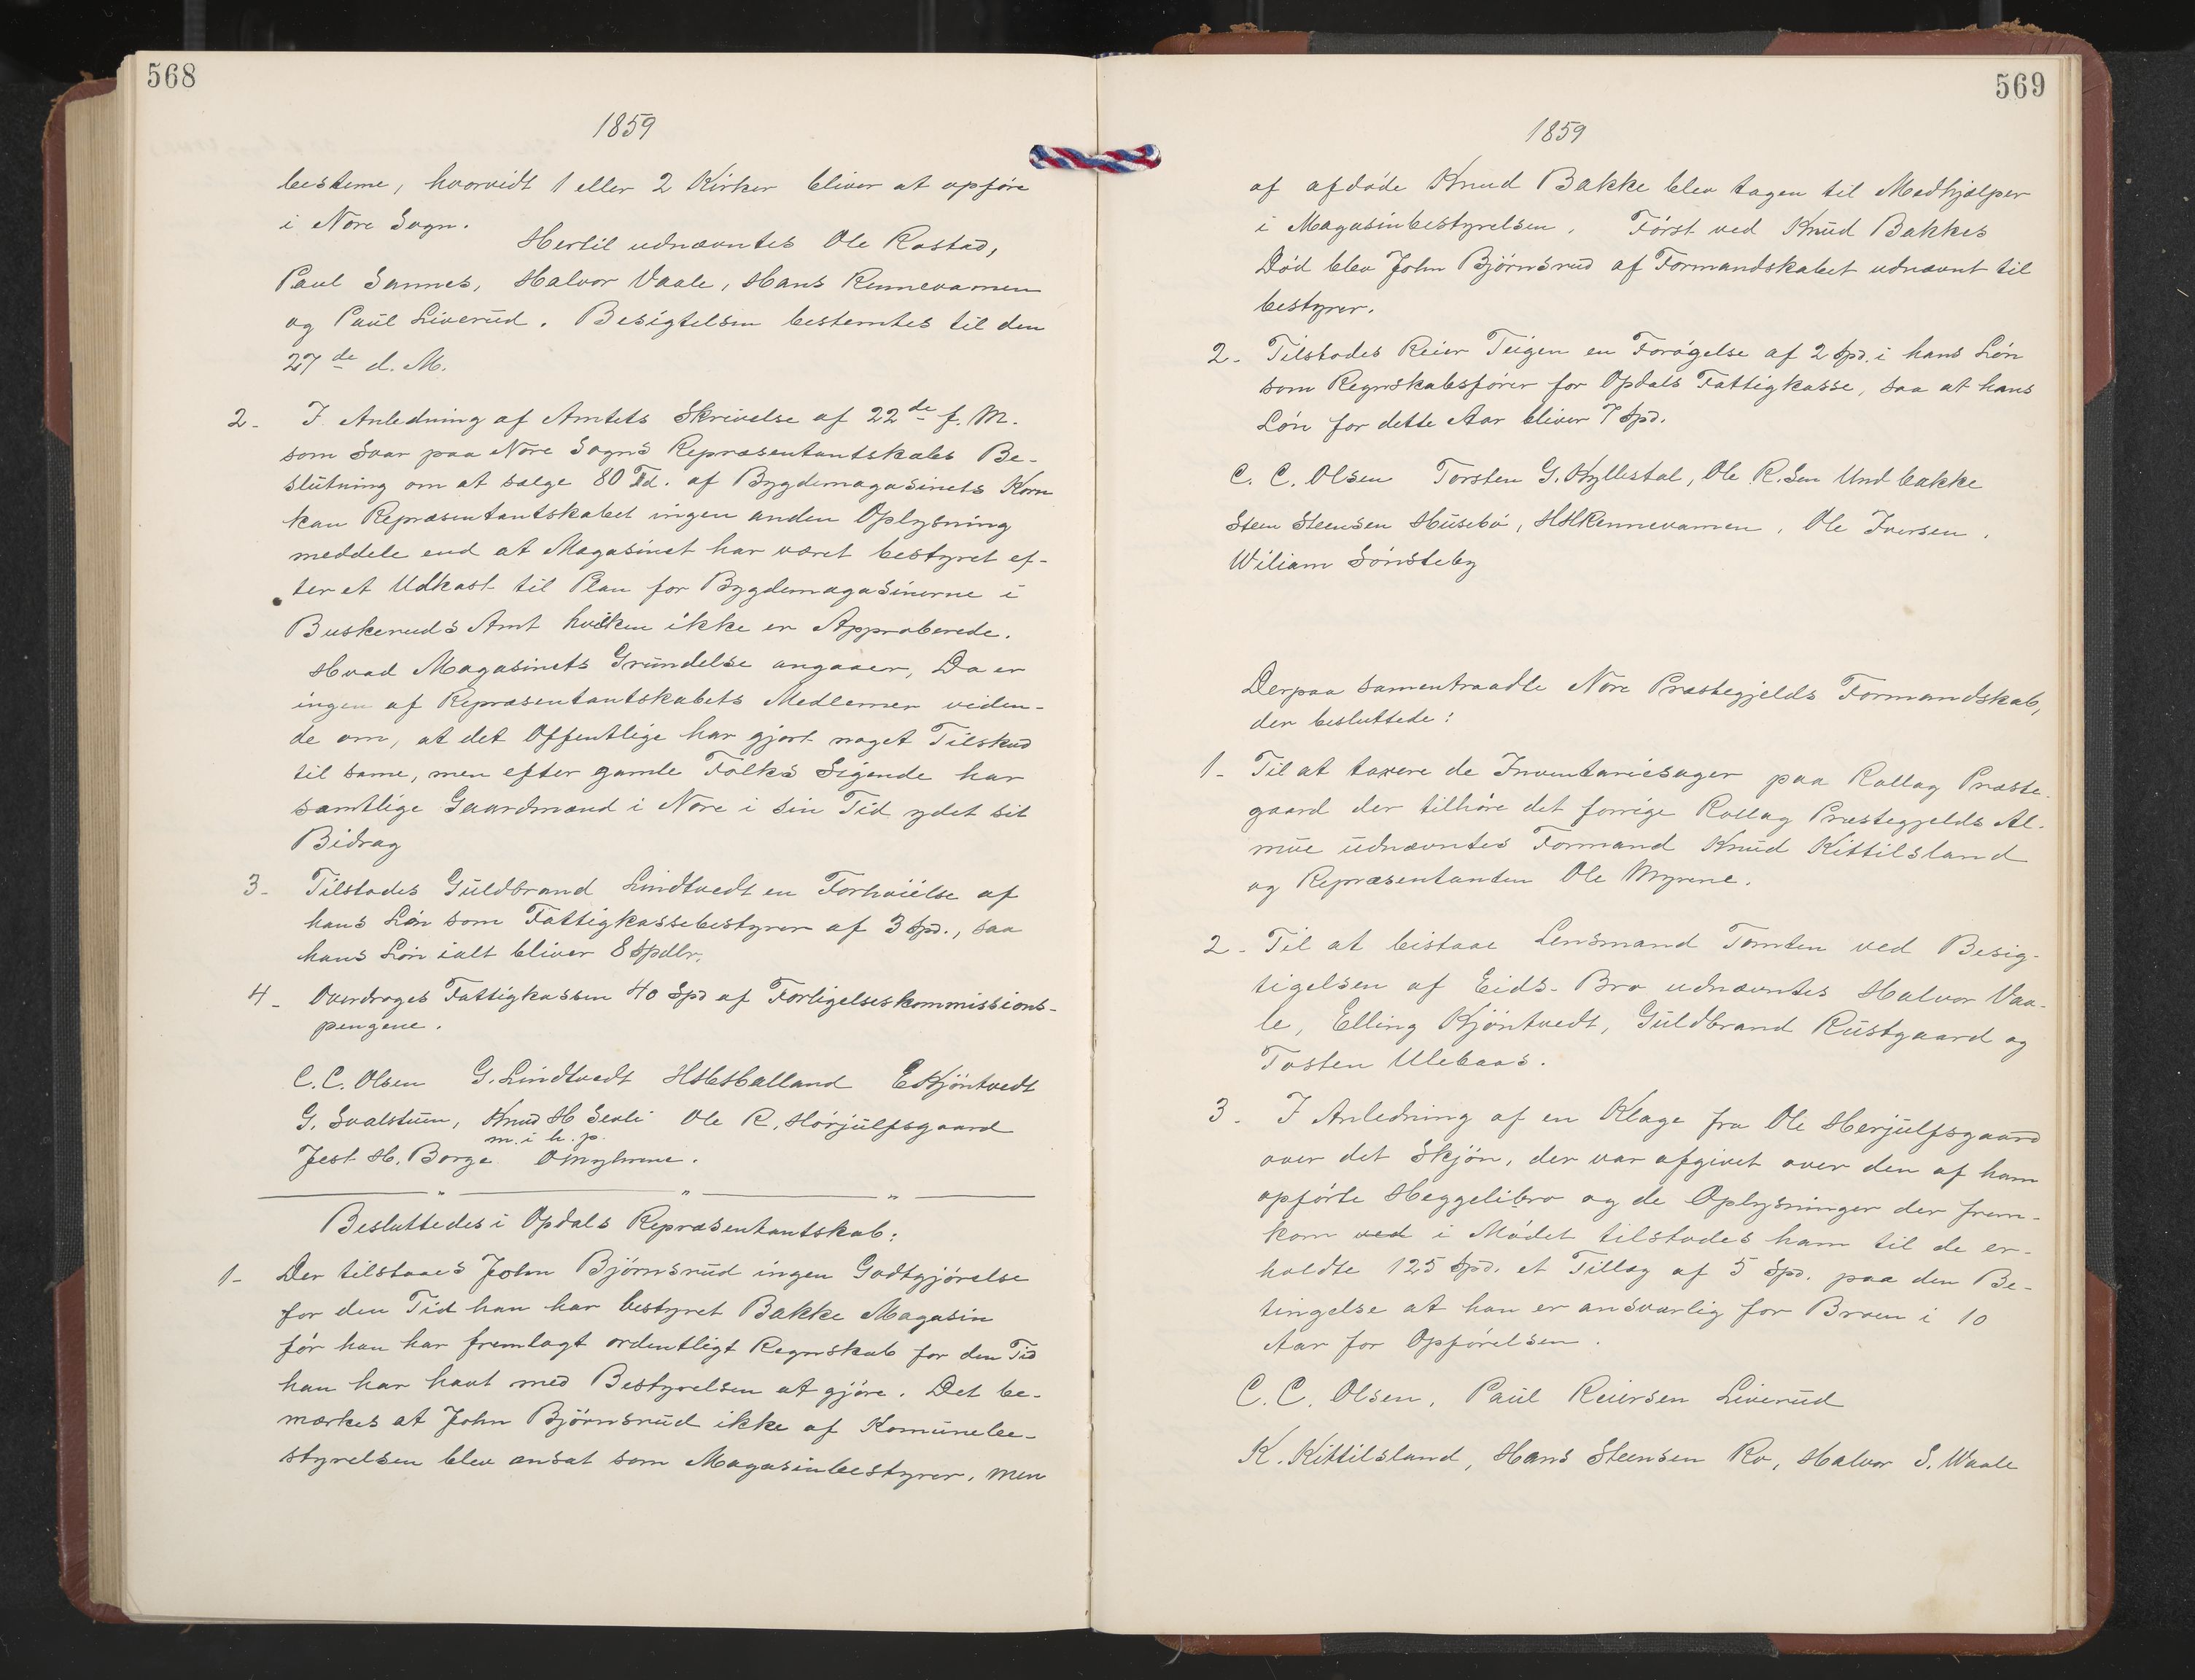 568
1859
besteme, hvorvidt 1 eller 2 Kirker bliver at opføre
i Nore Sogn.
Hertil udnævntes Ole Rostad,
Paul Sannes, Halvor Vaale, Hans Rennevamen
og Paul Liverud. Besigtelsen bestemtes til den
27de d. M.
2- I Anledning af Amtets Skrivelse af 22de f. M.
som Svar paa Nore Sogns Repræsentantskabs Be-
slutning om at sælge 80 Td. af Bygdemagasinets Korn
kan Repræsentantskabet ingen anden Oplysning
meddele end at Magasinet har været bestyret ef-
ter et Udkast til Plan for Bygdemagasinerne i
Buskeruds Amt hvilken ikke er Approberede.
Hvad Magasinets Grundelse angaaer, Da er
ingen af Repræsentantskabets Medlemer viden-
de om, at det Offentlige har gjort noget Tilskud
til same, men efter gamle Folks Sigende har
samtlige Gaardmænd i Nore i sin Tid ydet sit
Bidrag
3- Tilstodes Guldbrand Lindtvedt en Forhøielse af
hans Løn som Fattigkassebestyrer af 3 Spd., saa
hans Løn ialt bliver 8 Spdlr.
4- Overdroges Fattigkassen 40 Spd af Forligelseskommissions-
pengene.
C. C. Olsen G. Lindtvedt HHHalland EKjöntvedt
G. Svalstuen, Knud H Sevli Ole R. Hørjulfsgaard
m. i h. p.
Jest H. Borge
Besluttedes i Opdals Repræsentantskab:
1- Der tilstaaes John Björnsrud ingen Godtgjörelse
for den Tid han har bestyret Bakke Magasin
før han har fremlagt ordentligt Regnskab for den Tid
han har havt med Bestyrelsen at gjöre. Det be-
mærkes at John Björnsrud ikke af Komunebe-
styrelsen blev ansat som Magasinbestyrer, men
569
1859
af afdøde Knud Bakke blev tagen til Medhjælper
i Magasinbestyrelsen. Först ved Knud Bakkes
Død blev John Bjørnsrud af Formandskabet udnævnt til
bestyrer.
2- Tilstodes Reier Teigen en Forøgelse af 2 Spd. i hans Løn
som Regnskabsfører for Opdals Fattigkasse, saa at hans
Løn for dette Aar bliver 7 Spd.
C. C. Olsen Torsten G. Kyllestal, Ole R. Sen Und bakke
Steen Steensen Husebø, HHRennevamen, Ole Iversen,
Wiliam Sønsteby
Derpaa samentraadte Nore Præstegjelds Formandskab,
der besluttede:
1- Til at taxere de Inventariesager paa Rollag Præste-
gaard der tilhøre det forrige Rollag Præstegjelds Al-
mue udnævntes Formand Knud Kittilsland
og Repræsentanten Ole Myrene.
2- Til at bistaae Lensmand Tomten ved Besig-
tigelsen af Eids-Bro udnævntes Halvor Vaa-
le, Elling Kjöntvedt, Guldbrand Rustgaard og
Tosten Ulebaas.
3- I Anledning af en Klage fra Ole Herjulfsgaard
over det Skjön, der var afgivet over den af ham
opførte Heggelibro og de Oplysninger der frem-
kom ved i Mödet tilstodes ham til de er-
holdte 125 Spd. et Tillæg af 5 Spd. paa den Be-
tingelse at han er ansvarlig for Broen i 10
Aar for Opførelsen.
C. C. Olsen, Paul Reiersen Liverud
K. Kittilsland, Hans Steensen Ro, Halvor S. Waale